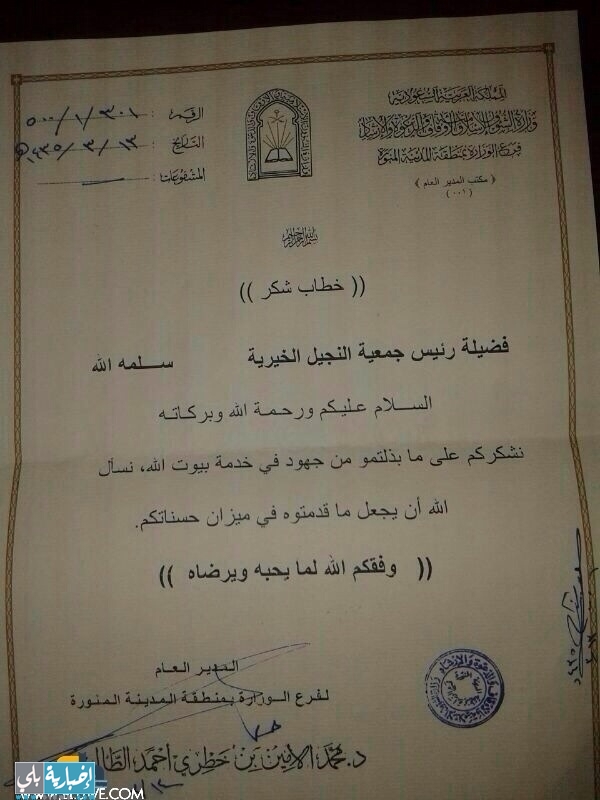 المملكة العربية السعودية
وزارة الشؤون الإسلامية والأوقاف والدعوة والإرشاد
فرع الوزارة بمنطقة المدينة المنورة
( مكتب المدير العام )
(٠٠١)
الرقم: ٥٠٠٠/١/٣٠١
التاريخ: ١٤٣٥/٣/١٣هـ
المشفوعات:
بسم الله الرحمن الرحيم
(( خطاب شكر ))
فضيلة رئيس جمعية النجيل الخيرية سلمه الله
السلام عليكم ورحمة الله وبركاته
نشكركم على ما بذلتمو من جهود في خدمة بيوت الله، نسأل
الله أن يجعل ما قدمتوه في ميزان حسناتكم.
(( وفقكم الله لما يحبه ويرضاه ))
المدير العام
لفرع الوزارة بمنطقة المدينة المنورة
د. محمد الأمين بن خطري أحمد
إخبارية بلي